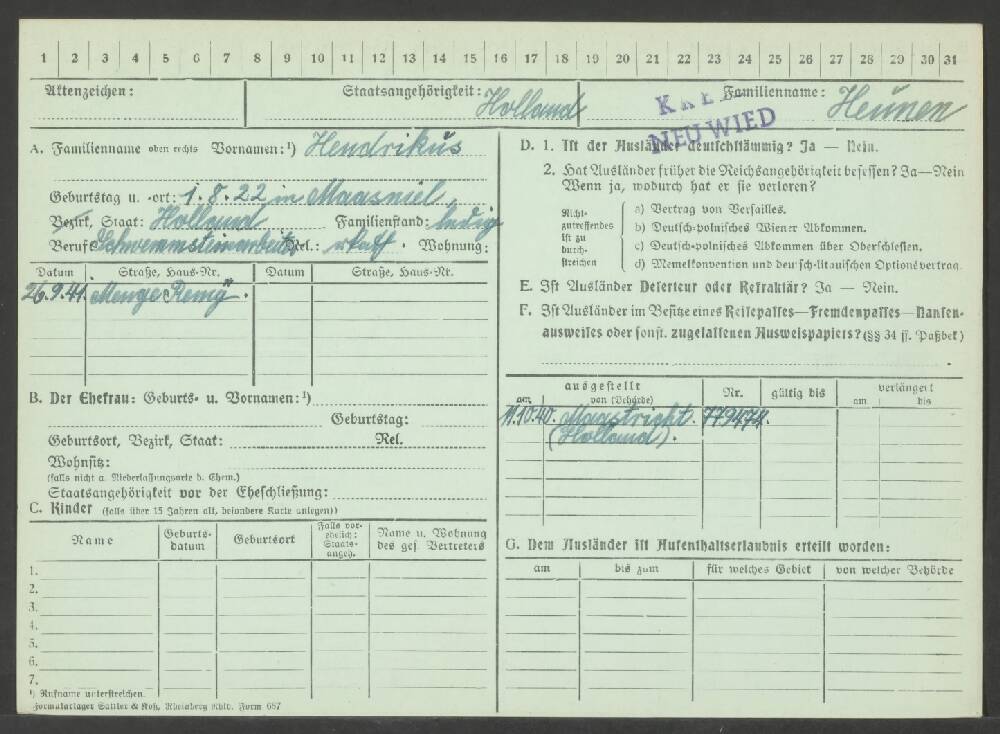 1 2 3 4 5 6 7 8 9 10 11 12 13 14 15 16 17 18 19 20 21 22 23 24 25 26 27 28 29 30 31
Aktenzeichen:
Staatsangehörigkeit: Holland
Familienname: Heunen
KREIS
NEUWIED
A. Familienname oben rechts Vornamen:¹) Hendrikus
Geburtstag u. -ort: 1.8.22 in Maasniel
Bezirk, Staat: Holland Familienstand: ledig
Beruf: Schwemmsteinarbeiter Rel.: rkath. Wohnung:
Datum Straße, Haus-Nr. Datum Straße, Haus-Nr.
26.9.41.
B. Der Ehefrau: Geburts- u. Vornamen:¹)
Geburtstag:
Geburtsort, Bezirk, Staat: Rel.
Wohnsitz:
(falls nicht a. Niederlassungsorte d. Ehem.)
Staatsangehörigkeit vor der Eheschließung:
C. Kinder (falls über 15 Jahren alt, besondere Karte anlegen))
Name Geburts-datum Geburtsort Falls vor-ehelich: Staats-angeh. Name u. Wohnung des ges. Vertreters
1.
2.
3.
4.
5.
6.
7.
¹) Rufname unterstreichen.
Formularlager Sattler & Koß, Rheinberg Rhld. Form 687
D. 1. Ist der Ausländer deutschstämmig? Ja — Nein.
2. Hat Ausländer früher die Reichsangehörigkeit besessen? Ja—Nein
Wenn ja, wodurch hat er sie verloren?
Nicht-zutreffendes ist zu durch-streichen
a) Vertrag von Versailles.
b) Deutsch-polnisches Wiener Abkommen.
c) Deutsch-polnisches Abkommen über Oberschlesien.
d) Memelkonvention und deutsch-litauischen Optionsvertrag.
E. Ist Ausländer Deserteur oder Refraktär? Ja — Nein.
F. Ist Ausländer im Besitze eines Reisepasses—Fremdenpasses—Nansen-
ausweises oder sonst. zugelassenen Ausweispapiers? (§§ 34 ff. Paßbek)
ausgestellt Nr. gültig bis verlängert
am von (Behörde) am bis
11.10.40. Maastricht. 779474.
(Holland).
G. Dem Ausländer ist Aufenthaltserlaubnis erteilt worden:
am bis zum für welches Gebiet von welcher Behörde